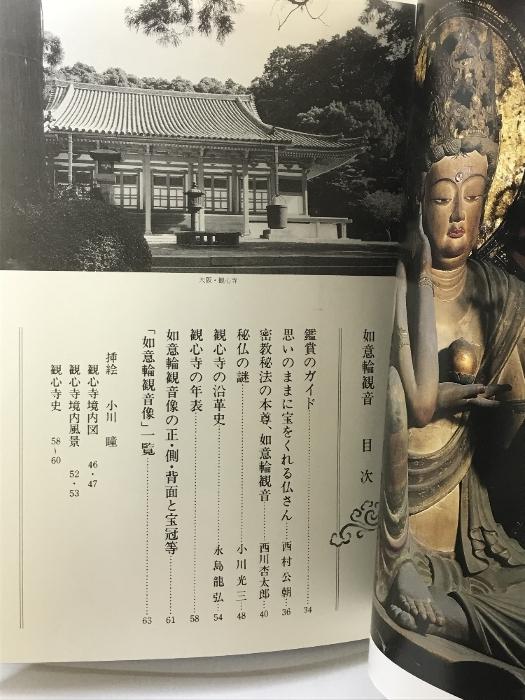 大阪・観心寺
如意輪観音　目次
鑑賞のガイド……34
思いのままに宝をくれる仏さん……西村公朝…36
密教秘法の本尊、如意輪観音……西川杏太郎…40
秘仏の謎……小川光三…48
観心寺の沿革史……永島龍弘…54
観心寺の年表……58
如意輪観音像の正・側・背面と宝冠等……61
「如意輪観音像」一覧……63
挿絵　小川　瞳
観心寺境内図　46・47
観心寺境内風景　52・53
観心寺史　58~60